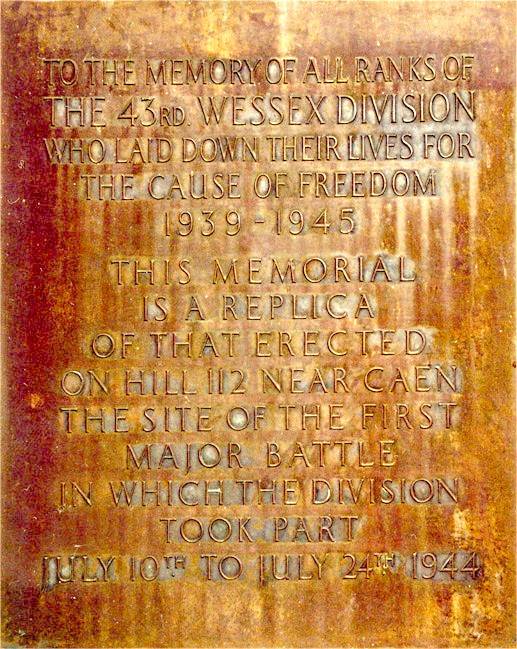 TO THE MEMORY OF ALL RANKS OF
THE 43RD. WESSEX DIVISION
WHO LAID DOWN THEIR LIVES FOR
THE CAUSE OF FREEDOM
1939-1945
THIS MEMORIAL
IS A REPLICA
OF THAT ERECTED
ON HILL 112 NEAR CAEN
THE SITE OF THE FIRST
MAJOR BATTLE
IN WHICH THE DIVISION
TOOK PART
JULY 10TH TO JULY 24TH 1944